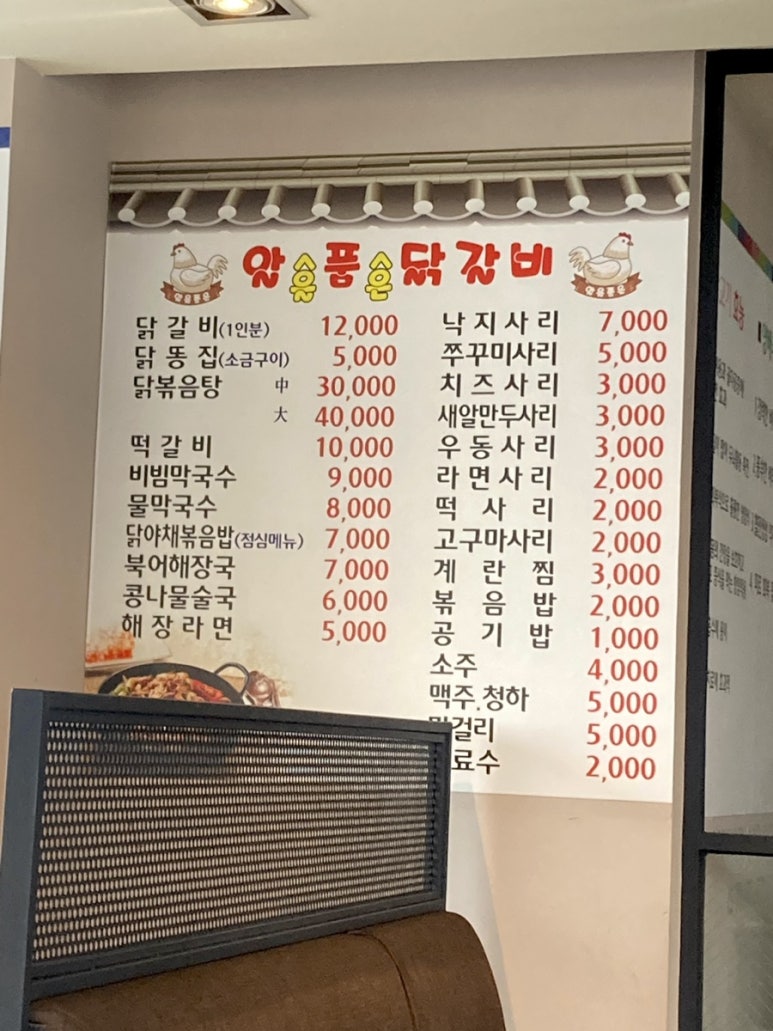 알을품은닭갈비
알을품은
알을품은
닭갈비(1인분) 12,000
닭똥집(소금구이) 5,000
닭볶음탕 中 30,000
大 40,000
떡갈비 10,000
비빔막국수 9,000
물막국수 8,000
닭야채볶음밥(점심메뉴) 7,000
북어해장국 7,000
콩나물술국 6,000
해장라면 5,000
낙지사리 7,000
쭈꾸미사리 5,000
치즈사리 3,000
새알만두사리 3,000
우동사리 3,000
라면사리 2,000
떡사리 2,000
고구마사리 2,000
계란찜 3,000
볶음밥 2,000
공기밥 1,000
소주 4,000
맥주.청하 5,000
막걸리 5,000
료수 2,000